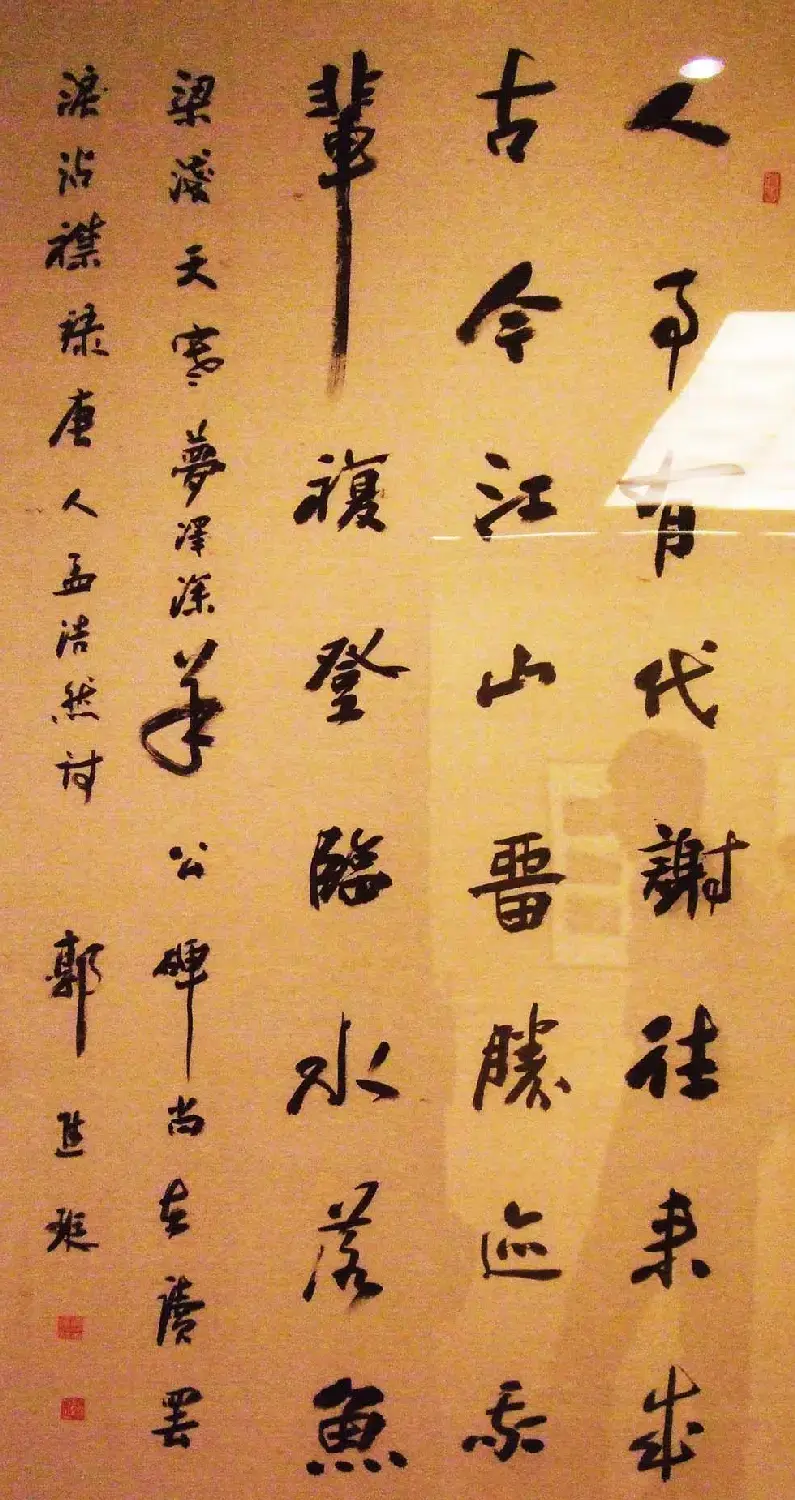 人事有代謝往來成
古今江山畱勝迹我
輩複登臨水落魚
梁淺天寒夢澤深羊公碑尚在讀罷
淚沾襟 錄唐人孟浩然詩 郭進